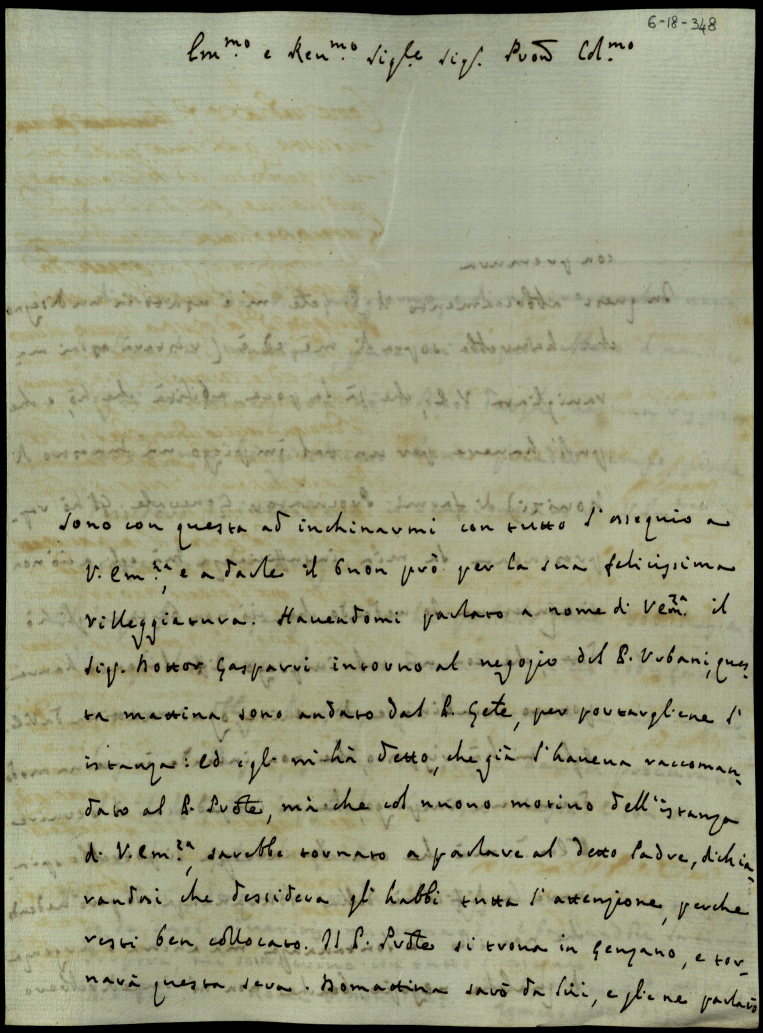 6-18-348
Em.mo e Reu.mo Sig.re Sig. Pron Col.mo
Sono con questa ad inchinarmi con tutto l'ossequio a
V. Em.za, e a darle il buon prò per la sua felicissima
villeggiatura. Hauendomi parlato a nome di V.Em.za il
Sig. Dottor Gasparri intorno al negozio del P. Urbani, ques-
ta mattina sono andato dal P. Gnle, per portargliene l'
istanza: ed egli mi hà detto, che già l'haueua raccoman-
dato al P. Prõle, mà che col nuouo motiuo dell'istanza
di V. Em.za, sarebbe tornato a parlare al detto Padre, dichia-
randosi che dessidera gli habbi tutta l'attenzione, perche
resti ben collocato. Il P. Prõle si troua in Genzano, e tor-
narà questa sera. Domattina sarò da Lui, e gliene parlarò